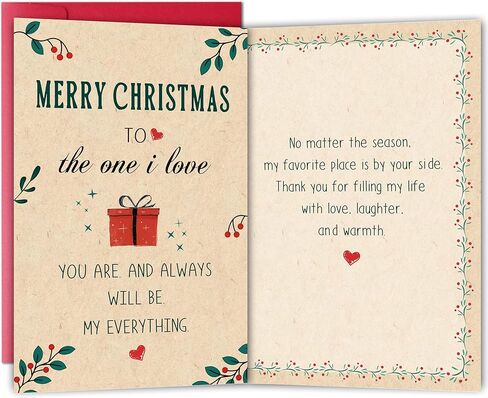 MERRY CHRISTMAS
TO
the one i love
YOU ARE, AND ALWAYS
WILL BE,
MY EVERYTHING
No matter the season,
my favorite place is by your side.
Thank you for filling my life
with love, laughter,
and warmth.